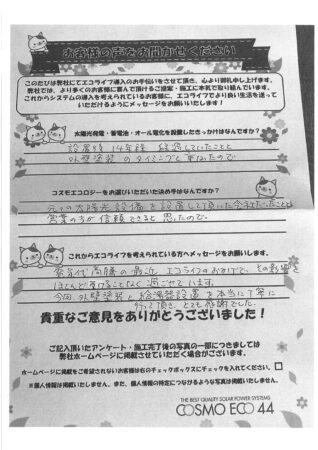 お客様の声をお聞かせください
このたびは弊社にてエコライフ導入のお手伝いをさせて頂き、心より御礼申し上げます。
弊社では、より多くのお客様に喜んで頂けるご提案・施工に本気で取り組んでいます。
これからシステムの導入を考えられているお客様に、エコライフでより良い生活を送って
いただけるようにメッセージをお願いいたします！
太陽光発電・蓄電池・オール電化を設置したきっかけはなんですか？
設置後14年程 経過していたことと
外壁塗装のタイミングと重なったので
コスモエコロジーをお選びいただいた決め手はなんですか？
元々の太陽光設備を設置して頂いた会社だったことと
営業の方が信頼できると思ったので。
これからエコライフを考えられている方へメッセージをお願いします。
電気代高騰の最近 エコライフのおかげで、その影響を
ほとんど受けることなく過ごせています。
今回、外壁塗装と給湯器設置を本当に丁寧に
やって頂き、とても感謝でした。
貴重なご意見をありがとうございました！
ご記入頂いたアンケート・施工完了後の写真の一部につきましては
弊社ホームページに掲載させていただく場合がございます。
ホームページに掲載をご希望されないお客様は右のチェックボックスにチェックを入れてください。
※個人情報は掲載いたしません、また、個人情報の特定につながるような写真は掲載いたしません。
THE BEST QUALITY SOLAR POWER SYSTEMS
COSMO ECO 44